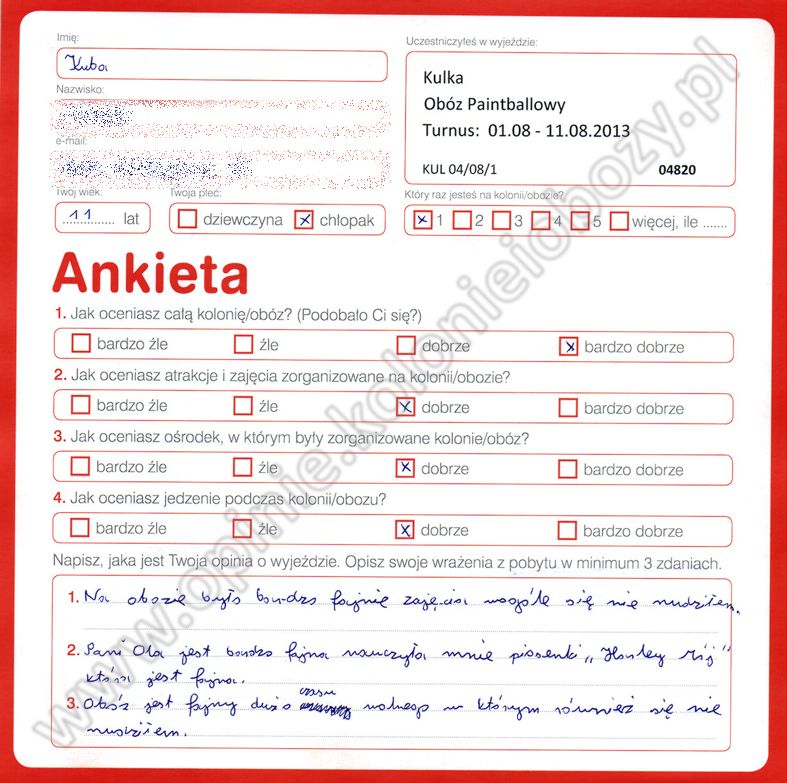 Imię:
Kuba
Uczestniczyłeś w wyjeździe:
Kulka
Obóz Paintballowy
Turnus: 01.08 - 11.08.2013
KUL 04/08/1 04820
Nazwisko:
e-mail:
Twój wiek:
11 lat
Twoja płeć:
dziewczyna x chłopak
Który raz jesteś na kolonii/obozie?
x 1 2 3 4 5 więcej, ile .......
Ankieta
1. Jak oceniasz całą kolonię/obóz? (Podobało Ci się?)
bardzo źle źle dobrze x bardzo dobrze
2. Jak oceniasz atrakcje i zajęcia zorganizowane na kolonii/obozie?
bardzo źle źle x dobrze bardzo dobrze
3. Jak oceniasz ośrodek, w którym były zorganizowane kolonie/obóz?
bardzo źle źle x dobrze bardzo dobrze
4. Jak oceniasz jedzenie podczas kolonii/obozu?
bardzo źle źle x dobrze bardzo dobrze
Napisz, jaka jest Twoja opinia o wyjeździe. Opisz swoje wrażenia z pobytu w minimum 3 zdaniach.
1. Na obozie było bardzo fajnie zajęcia wogóle się nie nudziłem.
2. Pani Ola jest bardzo fajna nauczyła mnie piosenki „Harley Mój"
która jest fajna.
3. Obóz jest fajny dużo czasu wolnego w którym również się nie
nudziłem.
www.opinie.kolonieiobozy.pl